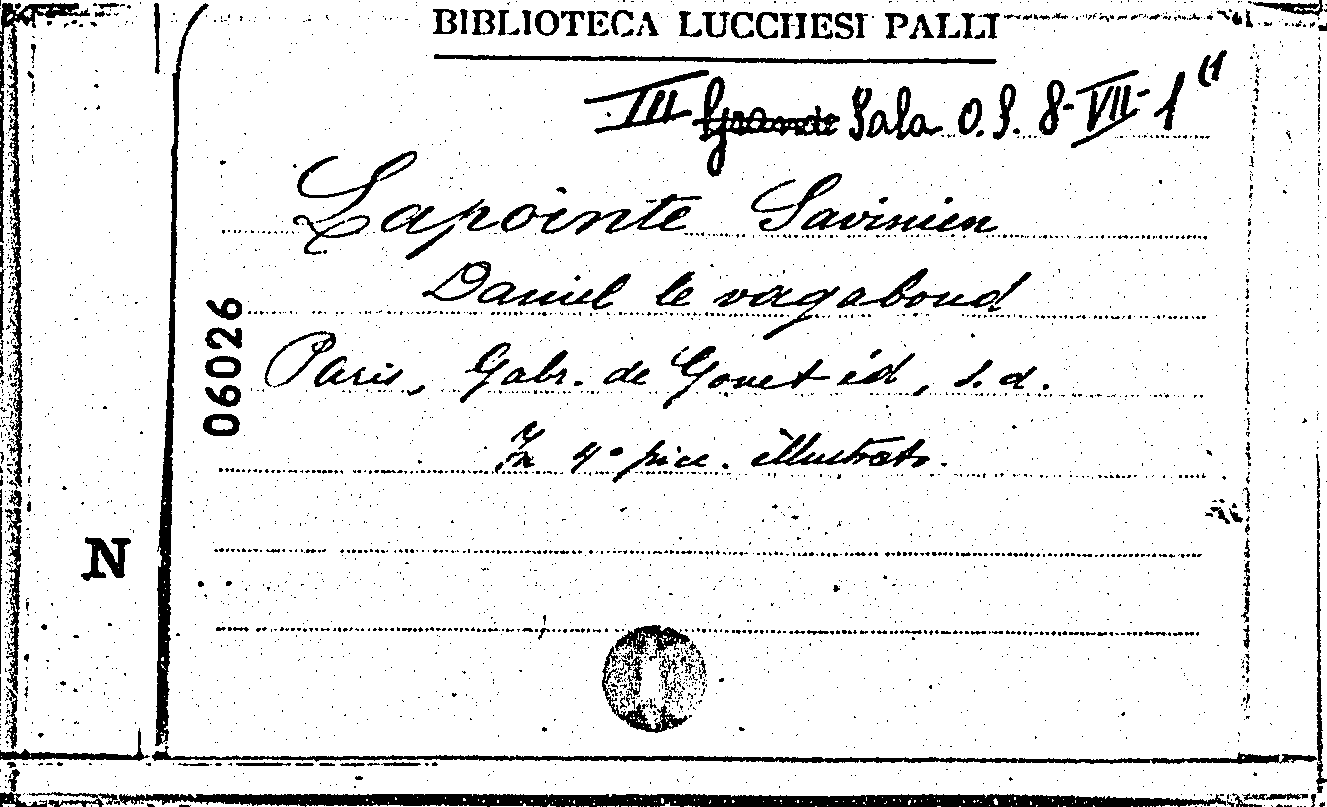 BIBLIOTECA LUCCHESI PALLI
III Grande Sala O. S. 8-VII-1 (1
Lapointe Savinien
Daniel le vagabond
Paris, Gabr. de Gonet éd, s. d.
In 4º picc. illustrato.
06026
N